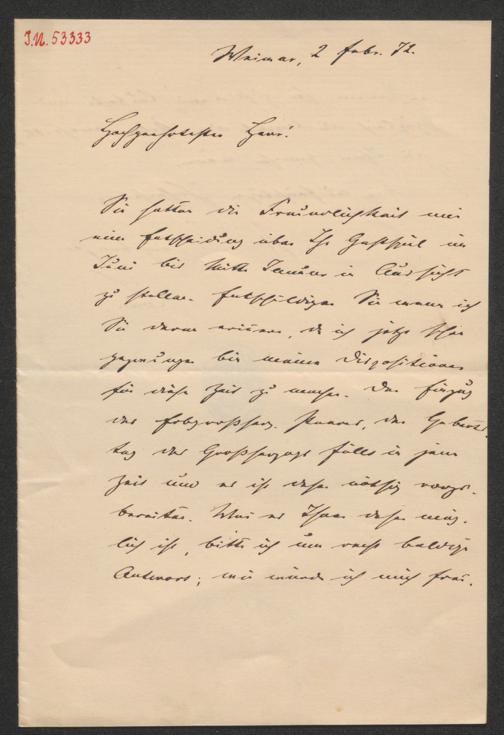 I.N. 53333
Weimar, 2 Febr. 72.
Hochgeehrtester Herr!
Sie hatten die Freundlichkeit mir
eine Entscheidung über Ihr Gastspiel im
Juni bis Mitte Januar in Aussicht
zu stellen. Entschuldigen Sie wenn ich
Sie daran erinnere, da ich jetzt schon
gezwungen bin meine Dispositionen
für diese Zeit zu machen. Der Einzug
des erbgroßherz. Paares, der Geburts-
tag des Großherzogs fällt in jene
Zeit und es ist daher nöthig vorzu-
bereiten. Wenn es Ihnen daher mög-
lich ist, bitte ich um recht baldige
Antwort; wie würde ich mich freu-